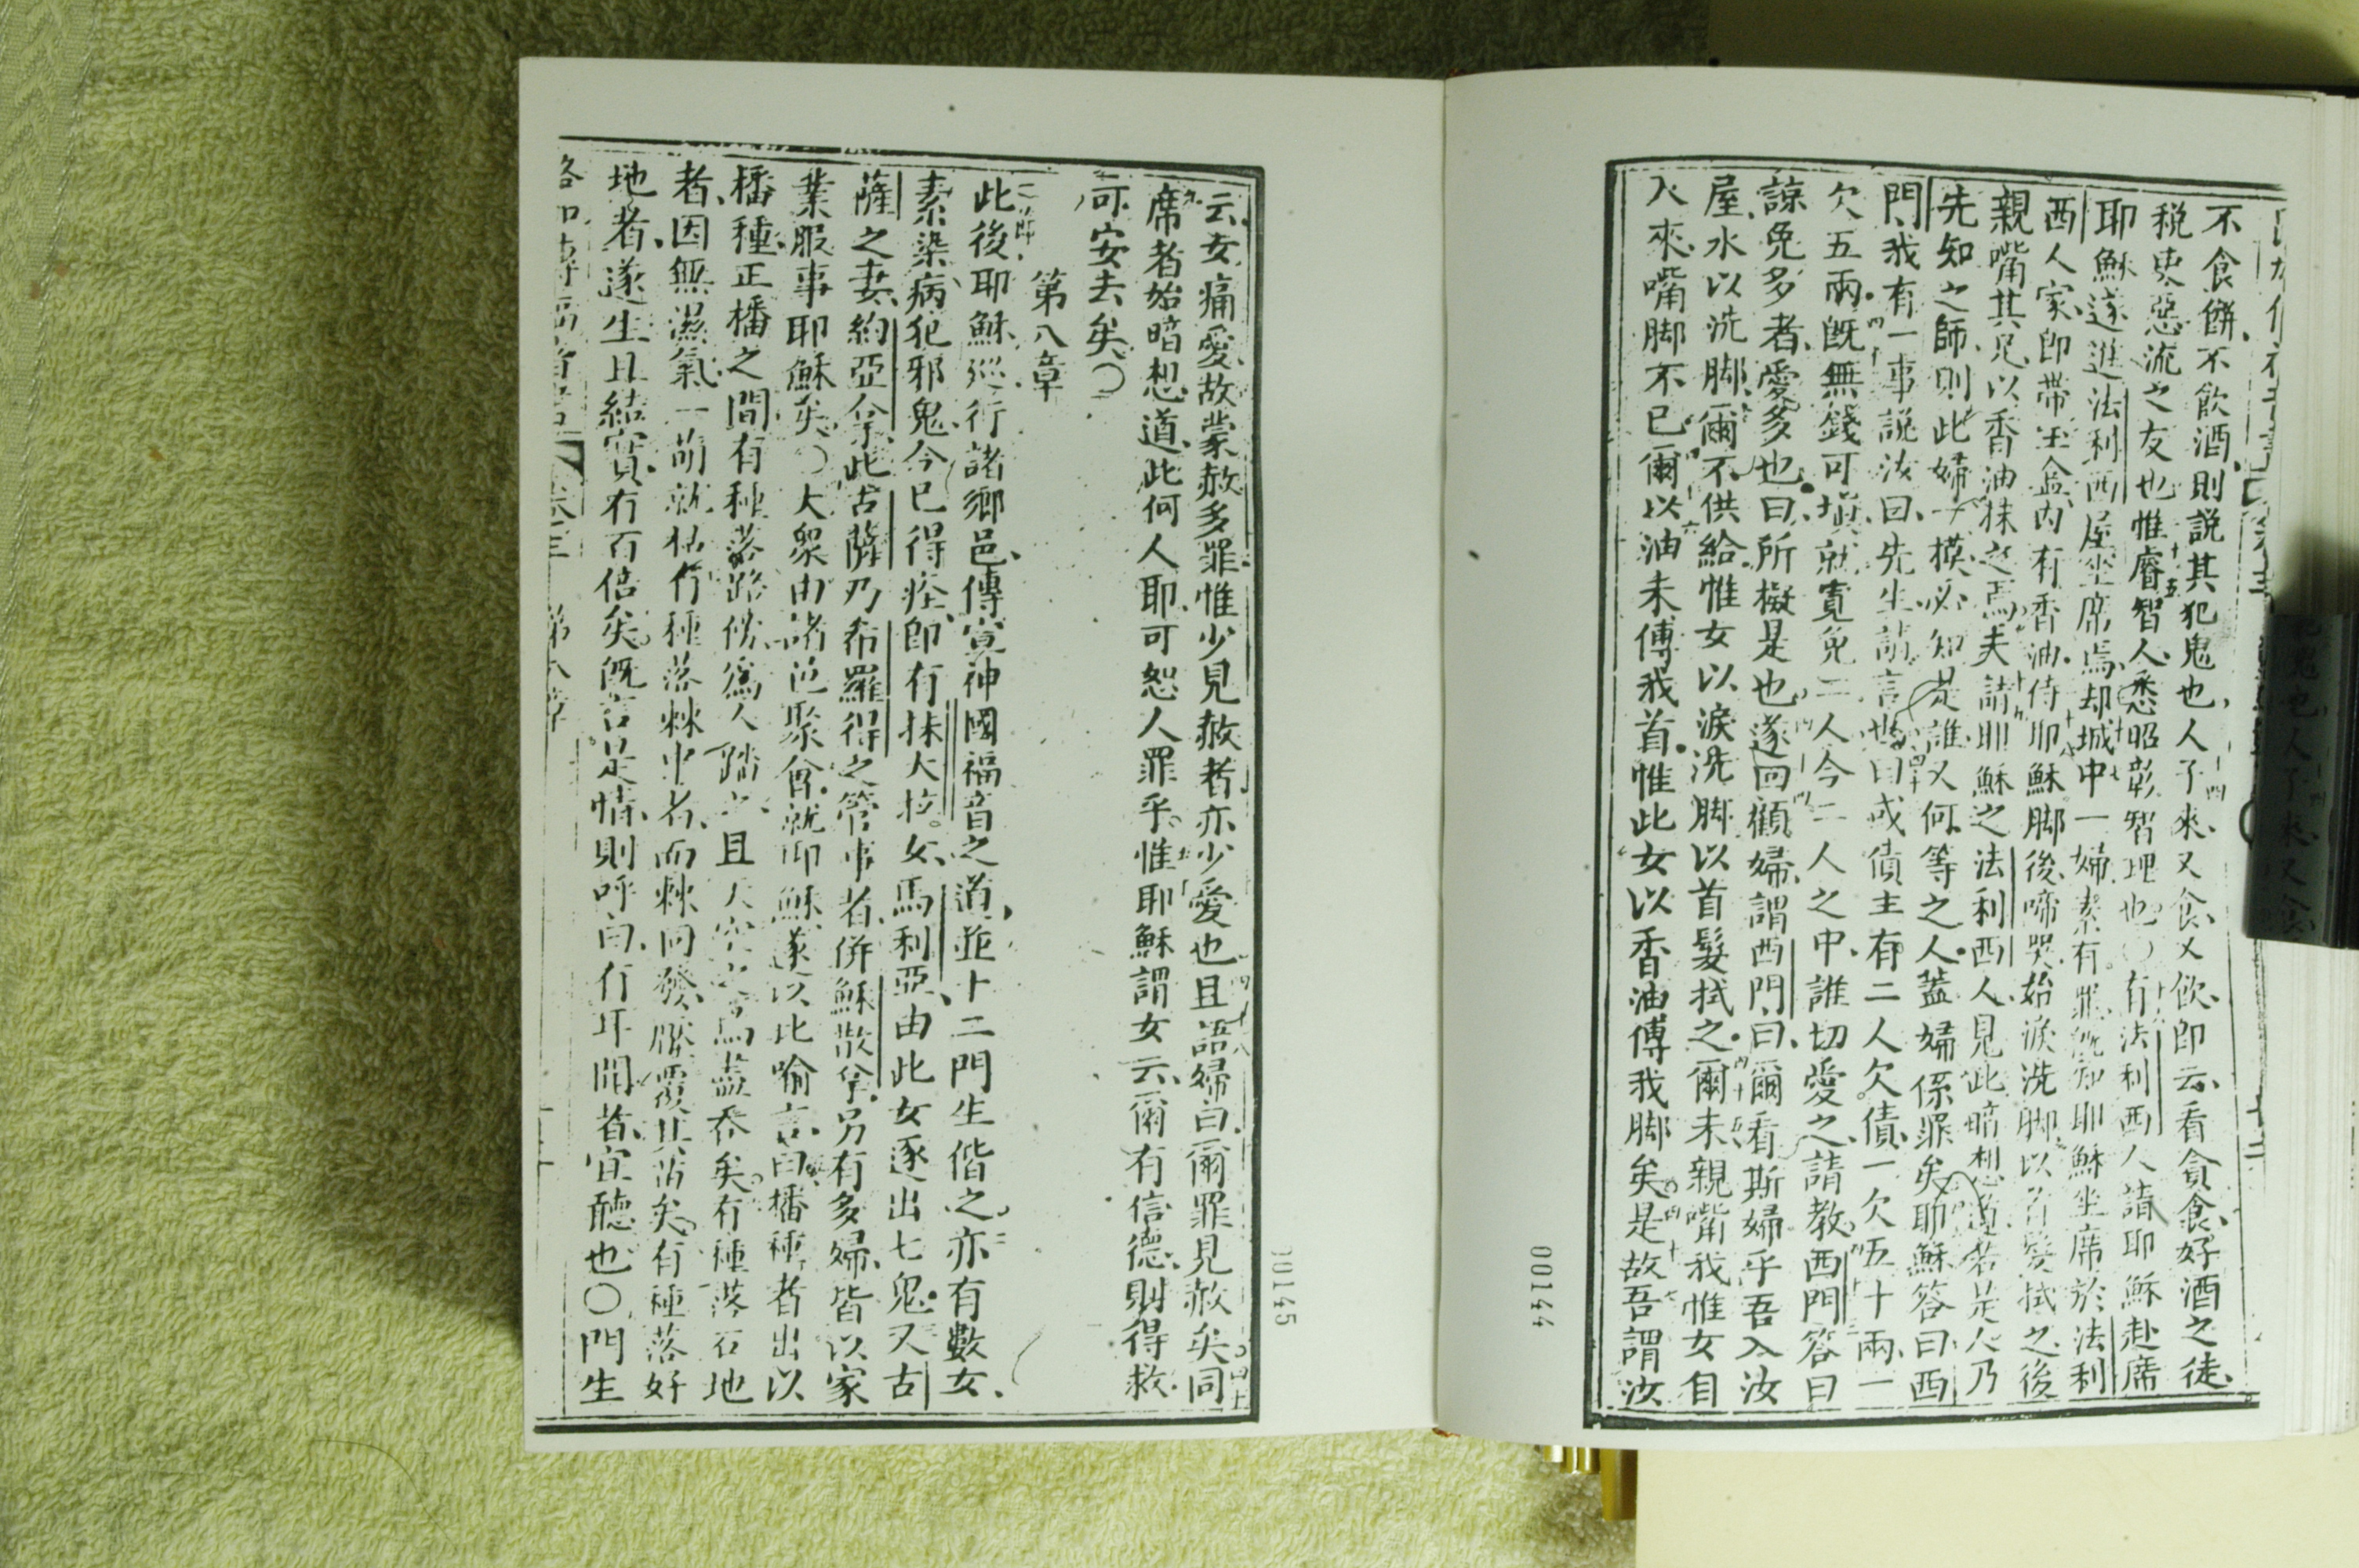 不食餅不飲酒則說其犯鬼也人子來又食又飲即云看貪食好酒之徒
稅吏惡流之友也惟睿智人悉昭彰智理也〇有法利西人請耶穌赴席
耶穌遂進法利西屋坐席焉却城中一婦素有罪既知耶穌坐席於法利
西人家即帶玉盒內有香油侍耶穌脚後啼哭始淚洗脚以首髮拭之後
親嘴其足以香油抹之焉夫請耶穌之法利西人見此暗想道若是人乃
先知之師則此婦一摸必知是誰又何等之人蓋婦係罪矣耶穌答曰西
門我有一事說汝曰先生請言也曰或債主有二人欠債一欠五十兩一
欠五兩既無錢可塡就寬免二人今二人之中誰切愛之請教西門答曰
諒免多者愛多也曰所擬是也遂回顧婦謂西門曰爾看斯婦乎吾入汝
屋水以洗脚爾不供給惟女以淚洗脚以首髮拭之爾未親嘴我惟女自
入來嘴脚不已爾以油未傅我首惟此女以香油傅我脚矣是故吾謂汝
00144
云女痛愛故蒙赦多罪惟少見赦者亦少愛也且語婦白爾罪見赦矣同
席者始暗想道此何人耶可恕人罪乎惟耶穌謂女云爾有信德則得救
可安去矣〇
第八章
此後耶穌巡行諸鄉邑傳宣神國福音之道並十二門生偕之亦有數女
素染病犯邪鬼今已得痊即有抹大拉女馬利亞由此女逐出七鬼又古
薩之妻約亞拿此古薩乃希羅得之管事者併穌散拿另有多婦皆以家
業服事耶穌矣〇大眾由諸邑聚會就耶穌遂以比喻言曰播種者出以
播種正播之間有種落路傍爲人踏之且天空之鳥盡吞矣有種落石地
者因無濕氣一萌就枯有種落棘中者而棘同發壓覆其苗矣有種落好
地者遂生且結實有百倍矣既言是情則呼曰有耳聞者宜聽也〇門生
00145